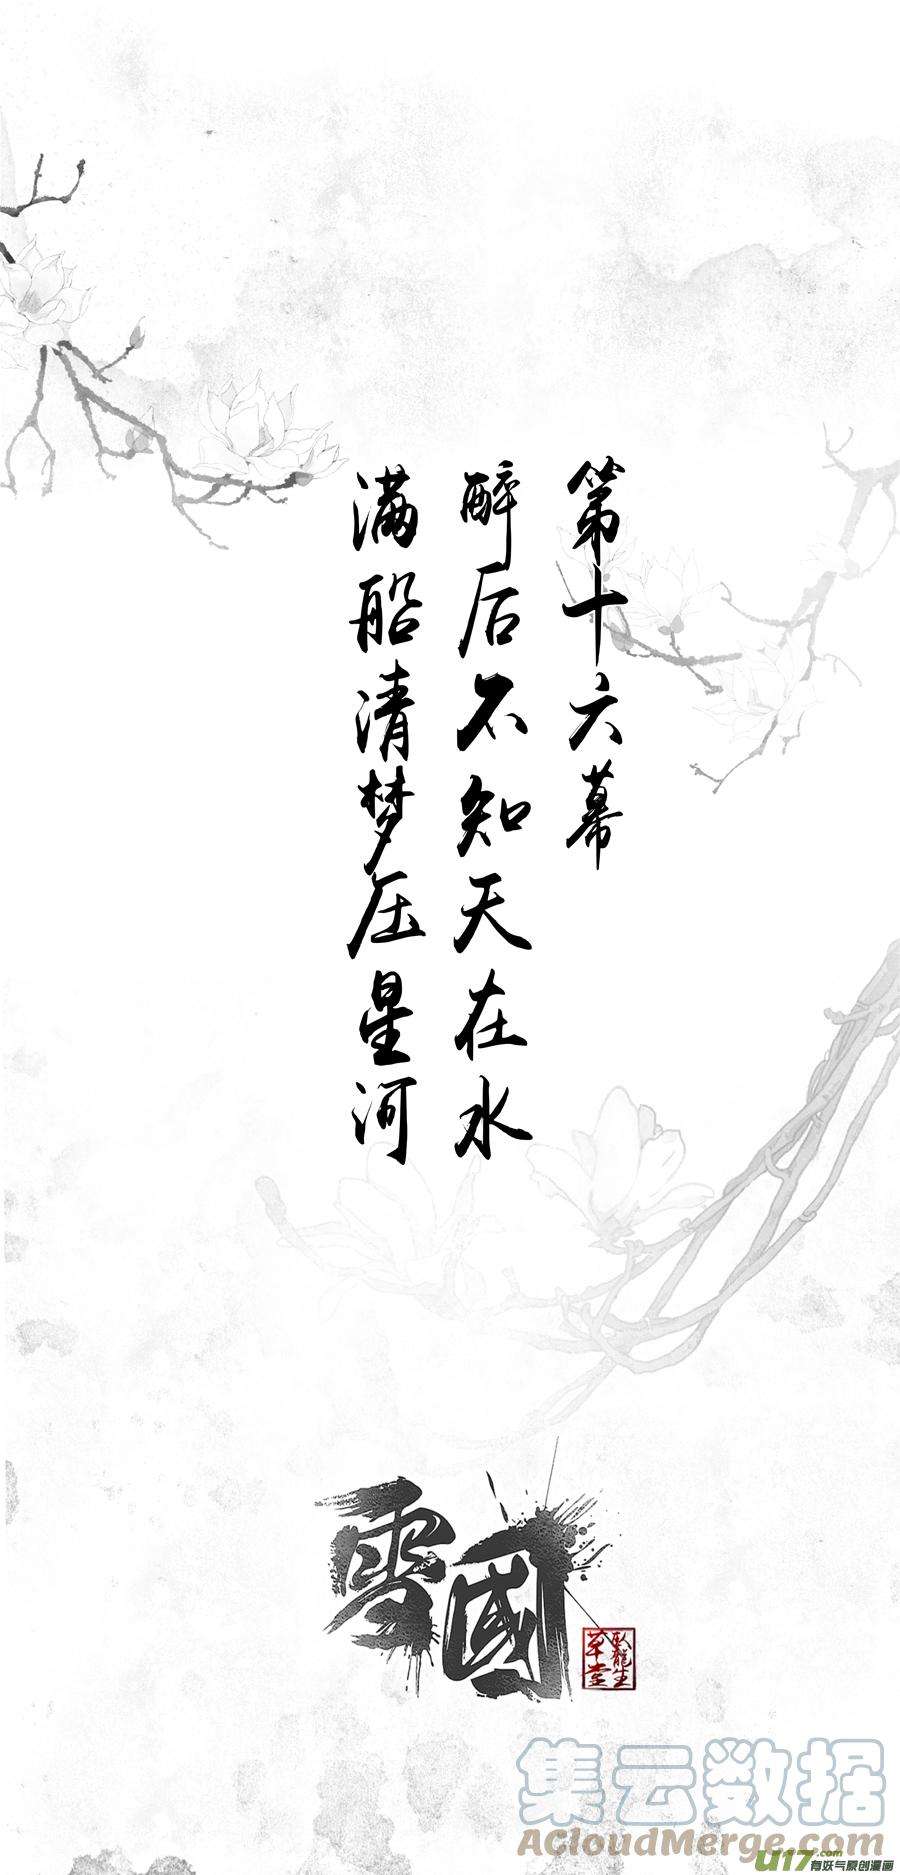 第十六幕
醉后不知天在水
满船清梦压星河
雪國
卧龍生
草堂
集云数据
AcloudMerge.com
U17.com
有妖气原创漫画